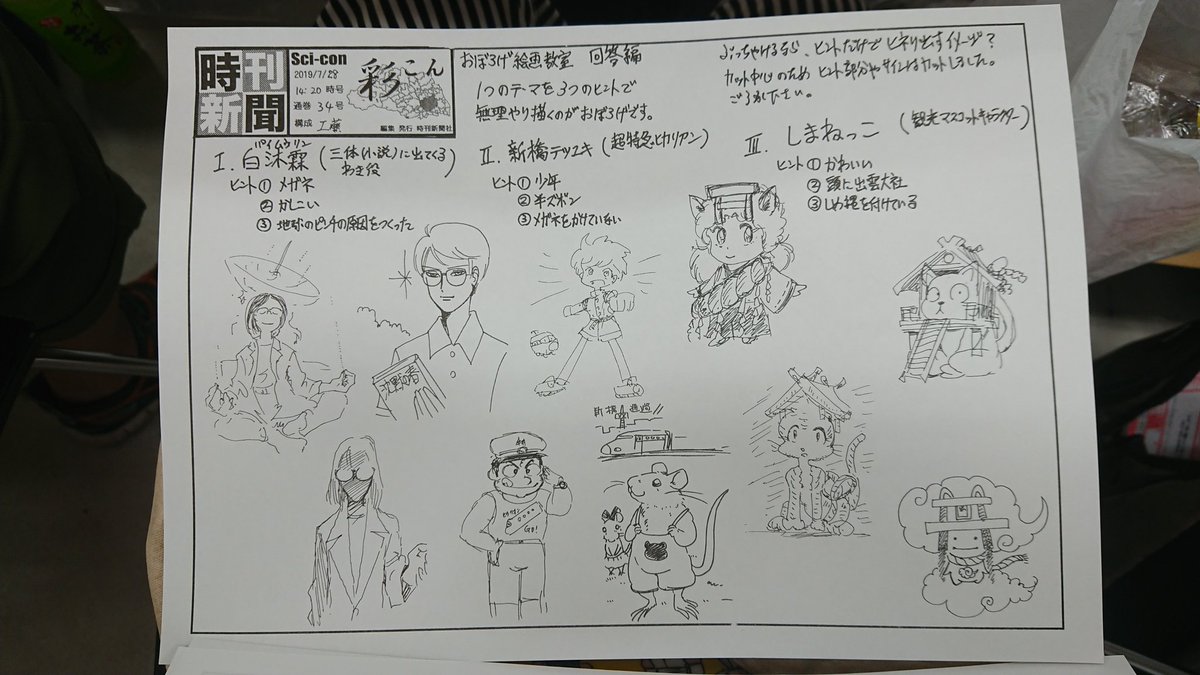 時刊
新聞
Sci-con
2019/7/28
14:20 時号
通巻 34号
構成 工藤
彩こん
編集 発行 時刊新聞社
おぼろげ絵画教室 回答編
1つのテーマを3つのヒントで
無理やり描くのがおぼろげです。
ぶっちゃけるなら、ヒントだけでヒネり出すイメージ?
カット中心のため ヒント部分やサインはカットしました。
ご了承下さい。
I. 白沐霖 (三体(小説)に出てくる
わき役)
バイムウリン
ヒント① メガネ
② かしこい
③ 地球のピンチの原因をつくった
II. 新橋テツユキ (超特急ヒカリアン)
ヒント① 少年
② 半ズボン
③ メガネをかけていない
III. しまねっこ (観光マスコットキャラクター)
ヒント① かわいい
② 頭に出雲大社
③ しめ縄を付けている
新橋 通過!!
GO!